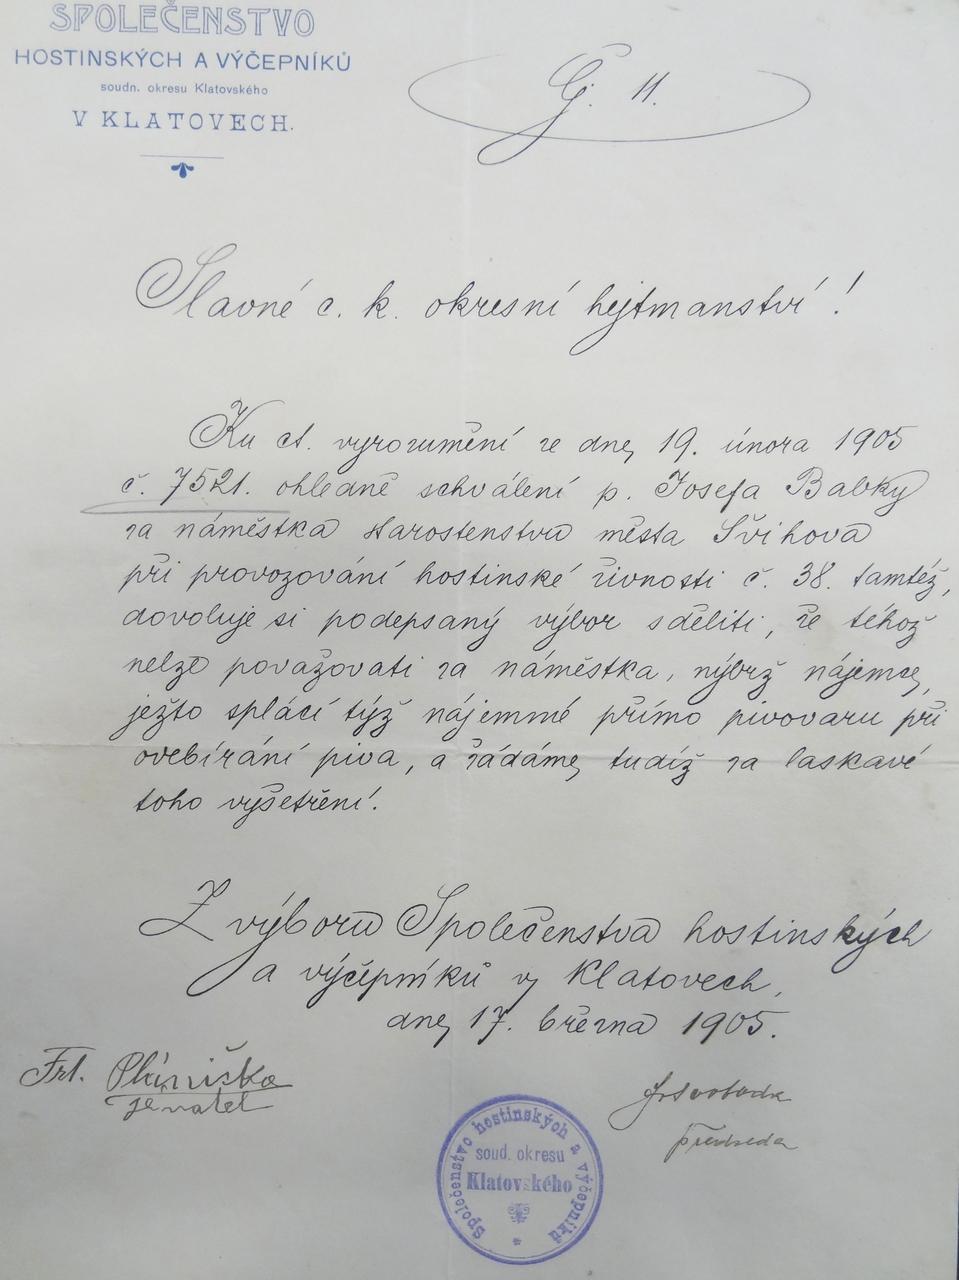 SPOLEČENSTVO
HOSTINSKÝCH A VÝČEPNÍKŮ
soudn. okresu Klatovského
V KLATOVECH.
G. 11.
Slavné c. k. okresní hejtmanství!
Ku ct. vyrozumění ze dne 19. února 1905
č. 7521. ohledně schválení p. Josefa Babky
za náměstka starostenstva města Švihova
při provozování hostinské živnosti č. 38. tamtéž,
dovoluje si podepsaný výbor sděliti, že téhož
nelze považovati za náměstka, nýbrž nájemce,
ježto splácí týž nájemmé přímo pivovaru při
odebírání piva, a žádáme tudíž za laskavé
toho vyšetření.
Z výboru Společenstva hostinských
a výčepníků v Klatovech,
dne 17. března 1905.
Frt.
jednatel
Fr Svoboda
předseda
Společenstvo hostinských a výčepníků
soud. okresu
Klatovského